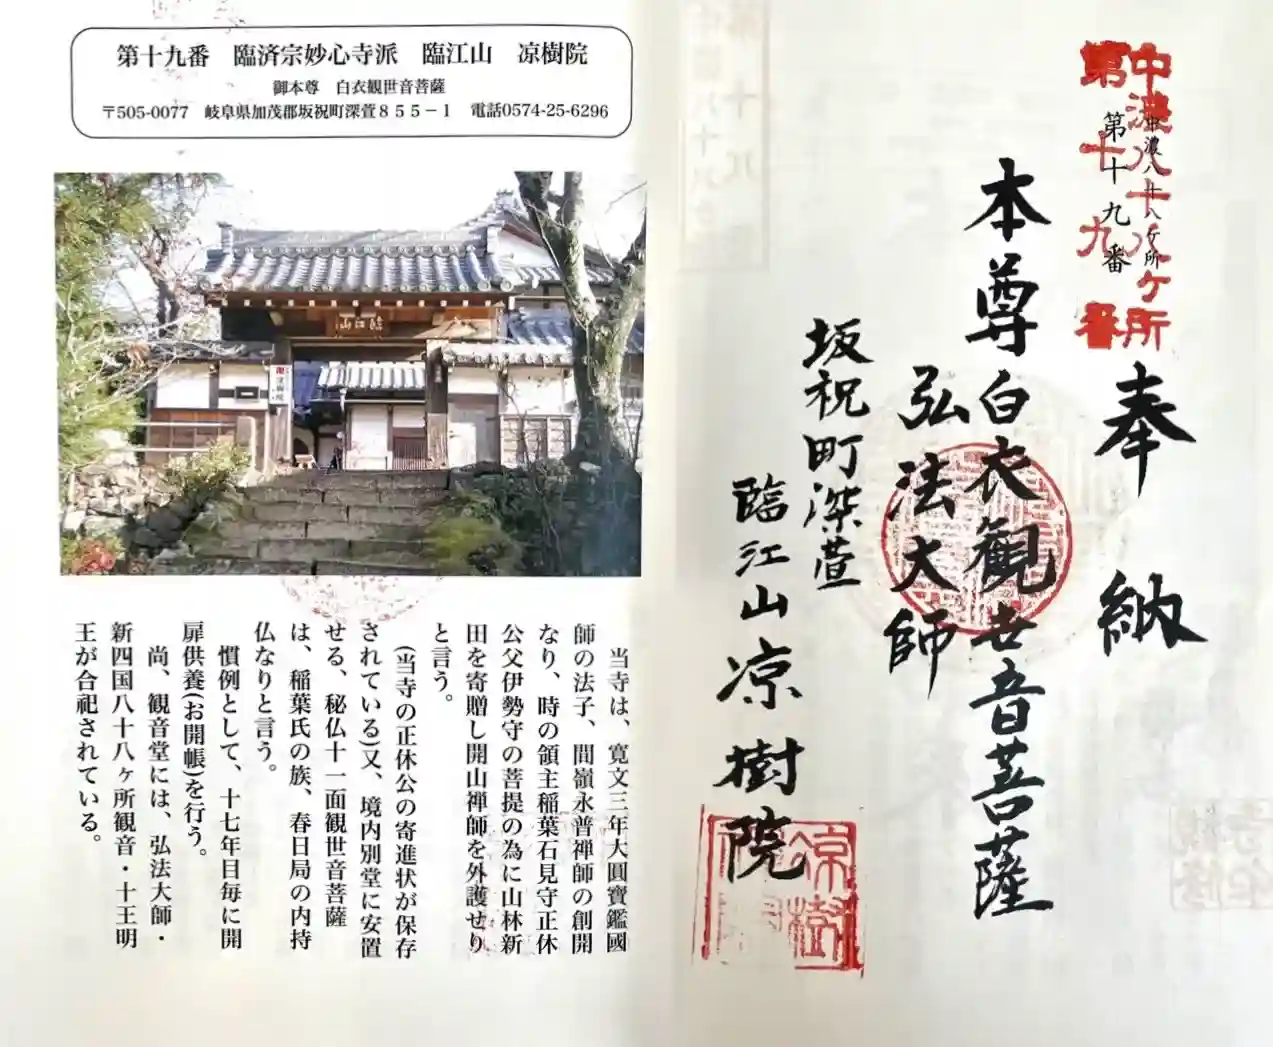 第十九番 臨済宗妙心寺派 臨江山 凉樹院
御本尊 白衣観世音菩薩
〒505-0077 岐阜県加茂郡坂祝町深萱855-1 電話0574-25-6296
臨江山
当寺は、寛文三年大圓寶鑑國
師の法子、間嶺永普禅師の創開
なり、時の領主稲葉石見守正休
公父伊勢守の菩提の為に山林新
田を寄贈し開山禅師を外護せり
と言う。
(当寺の正休公の寄進状が保存
されている)又、境内別堂に安置
せる、秘仏十一面観世音菩薩
は、稲葉氏の族、春日局の内持
仏なりと言う。
慣例として、十七年目毎に開
扉供養(お開帳)を行う。
尚、観音堂には、弘法大師・
新四国八十八ヶ所観音・十王明
王が合祀されている。
中濃八十八ヶ所
第十九番
中濃八十八ヶ所
第十九番
奉納
本尊白衣觀世音菩薩
弘法大師
坂祝町深萱
臨江山凉樹院
凉樹